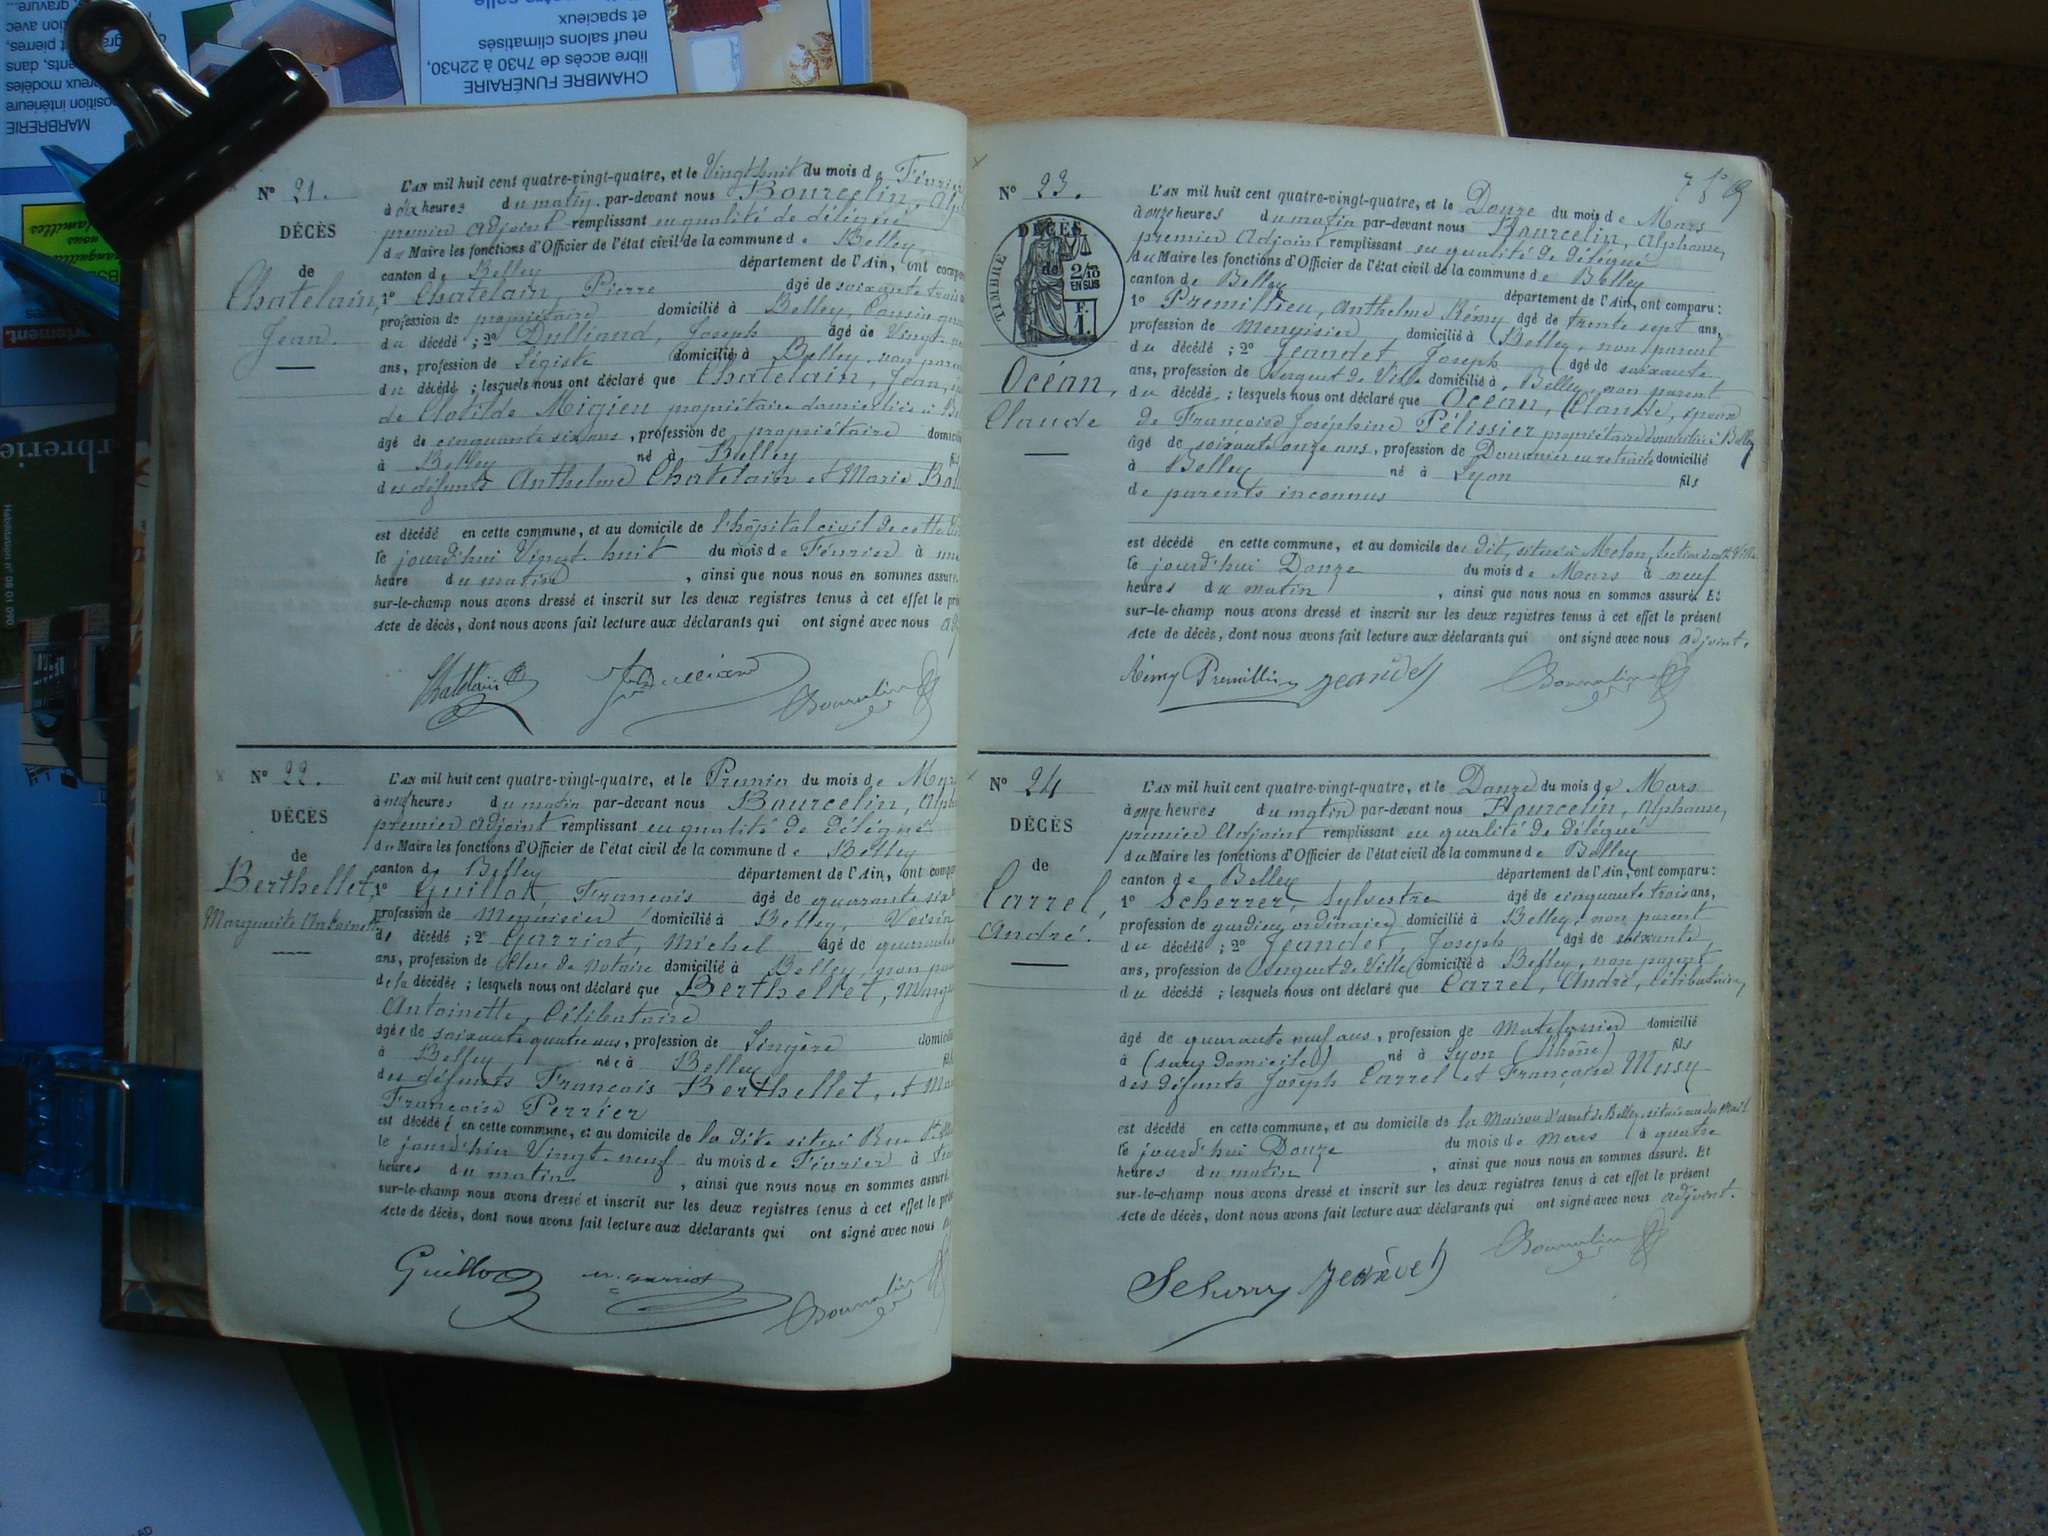 CHAMBRE FUNÉRAIRE
libre accès de 7h30 à 22h30,
neuf salons climatisés
et spacieux
MARBRERIE
N° 21.
DÉCÈS
de
Chatelain,
Jean.
L'AN mil huit cent quatre-vingt-quatre, et le Vingt huit du mois de Février
à dix heures du matin par-devant nous Bourcelin,
premier Adjoint remplissant en qualité de délégué
du Maire les fonctions d'Officier de l'état civil de la commune de Belley
canton de Belley département de l'Ain, ont
1° Chatelain, Pierre âgé de soixante trois
profession de propriétaire domicilié à Belley, Cousin
du décédé ; 2° Dulliand, Joseph âgé de Vingt
ans, profession de Légiste domicilié à Belley, non
du décédé ; lesquels nous ont déclaré que Chatelain, Jean,
de Clotilde Migieu propriétaire domiciliée à
âgé de cinquante six ans, profession de propriétaire
à Belley né à Belley
des défunts Anthelme Chatelain et Marie
est décédé en cette commune, et au domicile de l'hôpital civil de cette
le jourd'hui Vingt huit du mois de Février à une
heure du matin, ainsi que nous nous en sommes assuré.
sur-le-champ nous avons dressé et inscrit sur les deux registres tenus à cet effet le
acte de décès, dont nous avons fait lecture aux déclarants qui ont signé avec nous
Chatelain
N° 22.
DÉCÈS
de
Berthellet,
Marguerite Antoinette
L'AN mil huit cent quatre-vingt-quatre, et le Premier du mois de
à neuf heures du matin par-devant nous Bourcelin,
premier Adjoint remplissant en qualité de délégué
du Maire les fonctions d'Officier de l'état civil de la commune de Belley
canton de Belley département de l'Ain, ont
1° Guillot, François âgé de quarante six
profession de Menuisier domicilié à Belley, Voisin
de décédé ; 2° Garriot, Michel âgé de quarante
ans, profession de Clerc de Notaire domicilié à Belley, non
de la décédée ; lesquels nous ont déclaré que Berthellet,
Antoinette, Célibataire
âgée de soixante quatre ans, profession de Lingère
à Belley née à Belley
des défunts François Berthellet, et
Françoise Perrier
est décédée en cette commune, et au domicile de la dite situé Rue
le jourd'hier Vingt-neuf du mois de Février à
heures du matin, ainsi que nous nous en sommes assuré.
sur-le-champ nous avons dressé et inscrit sur les deux registres tenus à cet effet le
acte de décès, dont nous avons fait lecture aux déclarants qui ont signé avec nous
Guillot
N° 23.
DÉCÈS
de
TIMBRE
2/10
EN SUS
F.
1.
Océan,
Claude
L'AN mil huit cent quatre-vingt-quatre, et le Douze du mois de Mars
à onze heures du matin par-devant nous Bourcelin, Alphonse,
premier Adjoint remplissant en qualité de délégué
du Maire les fonctions d'Officier de l'état civil de la commune de Belley
canton de Belley département de l'Ain, ont comparu :
1° Premillieu, Anthelme Rémy âgé de trente sept ans,
profession de Menuisier domicilié à Belley, non parent
du décédé ; 2° Jeandet Joseph âgé de soixante
ans, profession de Sergent de Ville domicilié à Belley, non parent
du décédé ; lesquels nous ont déclaré que Océan, Claude, époux
de Françoise Joséphine Pélissier propriétaire domiciliée à Belley
âgé de soixante onze ans, profession de Douanier en retraite domicilié
à Belley né à Lyon fils
de parents inconnus
est décédé en cette commune, et au domicile du dit, situé à Melon, Section de cette Ville
le jourd'hui Douze du mois de Mars à neuf
heures du matin, ainsi que nous nous en sommes assuré. Et
sur-le-champ nous avons dressé et inscrit sur les deux registres tenus à cet effet le présent
acte de décès, dont nous avons fait lecture aux déclarants qui ont signé avec nous adjoint.
Rémy Premillieu Jeandet
N° 24
DÉCÈS
de
Carrel,
André.
L'AN mil huit cent quatre-vingt-quatre, et le Douze du mois de Mars
à onze heures du matin par-devant nous Bourcelin, Alphonse,
premier Adjoint remplissant en qualité de délégué
du Maire les fonctions d'Officier de l'état civil de la commune de Belley
canton de Belley département de l'Ain, ont comparu :
1° Scherrer, Sylvestre âgé de cinquante trois ans,
profession de gardien ordinaire domicilié à Belley, non parent
du décédé ; 2° Jeandet, Joseph âgé de soixante
ans, profession de Sergent de Ville domicilié à Belley, non parent
du décédé ; lesquels nous ont déclaré que Carrel, André, Célibataire,
âgé de quarante neuf ans, profession de Matelassier domicilié
à (sans domicile) né à Lyon (Rhône) fils
des défunts Joseph Carrel et Françoise Musy
est décédé en cette commune, et au domicile de la Maison d'arrêt de Belley, située rue du Mail
le jourd'hui Douze du mois de Mars à quatre
heures du matin, ainsi que nous nous en sommes assuré. Et
sur-le-champ nous avons dressé et inscrit sur les deux registres tenus à cet effet le présent
acte de décès, dont nous avons fait lecture aux déclarants qui ont signé avec nous adjoint.
Jeandet